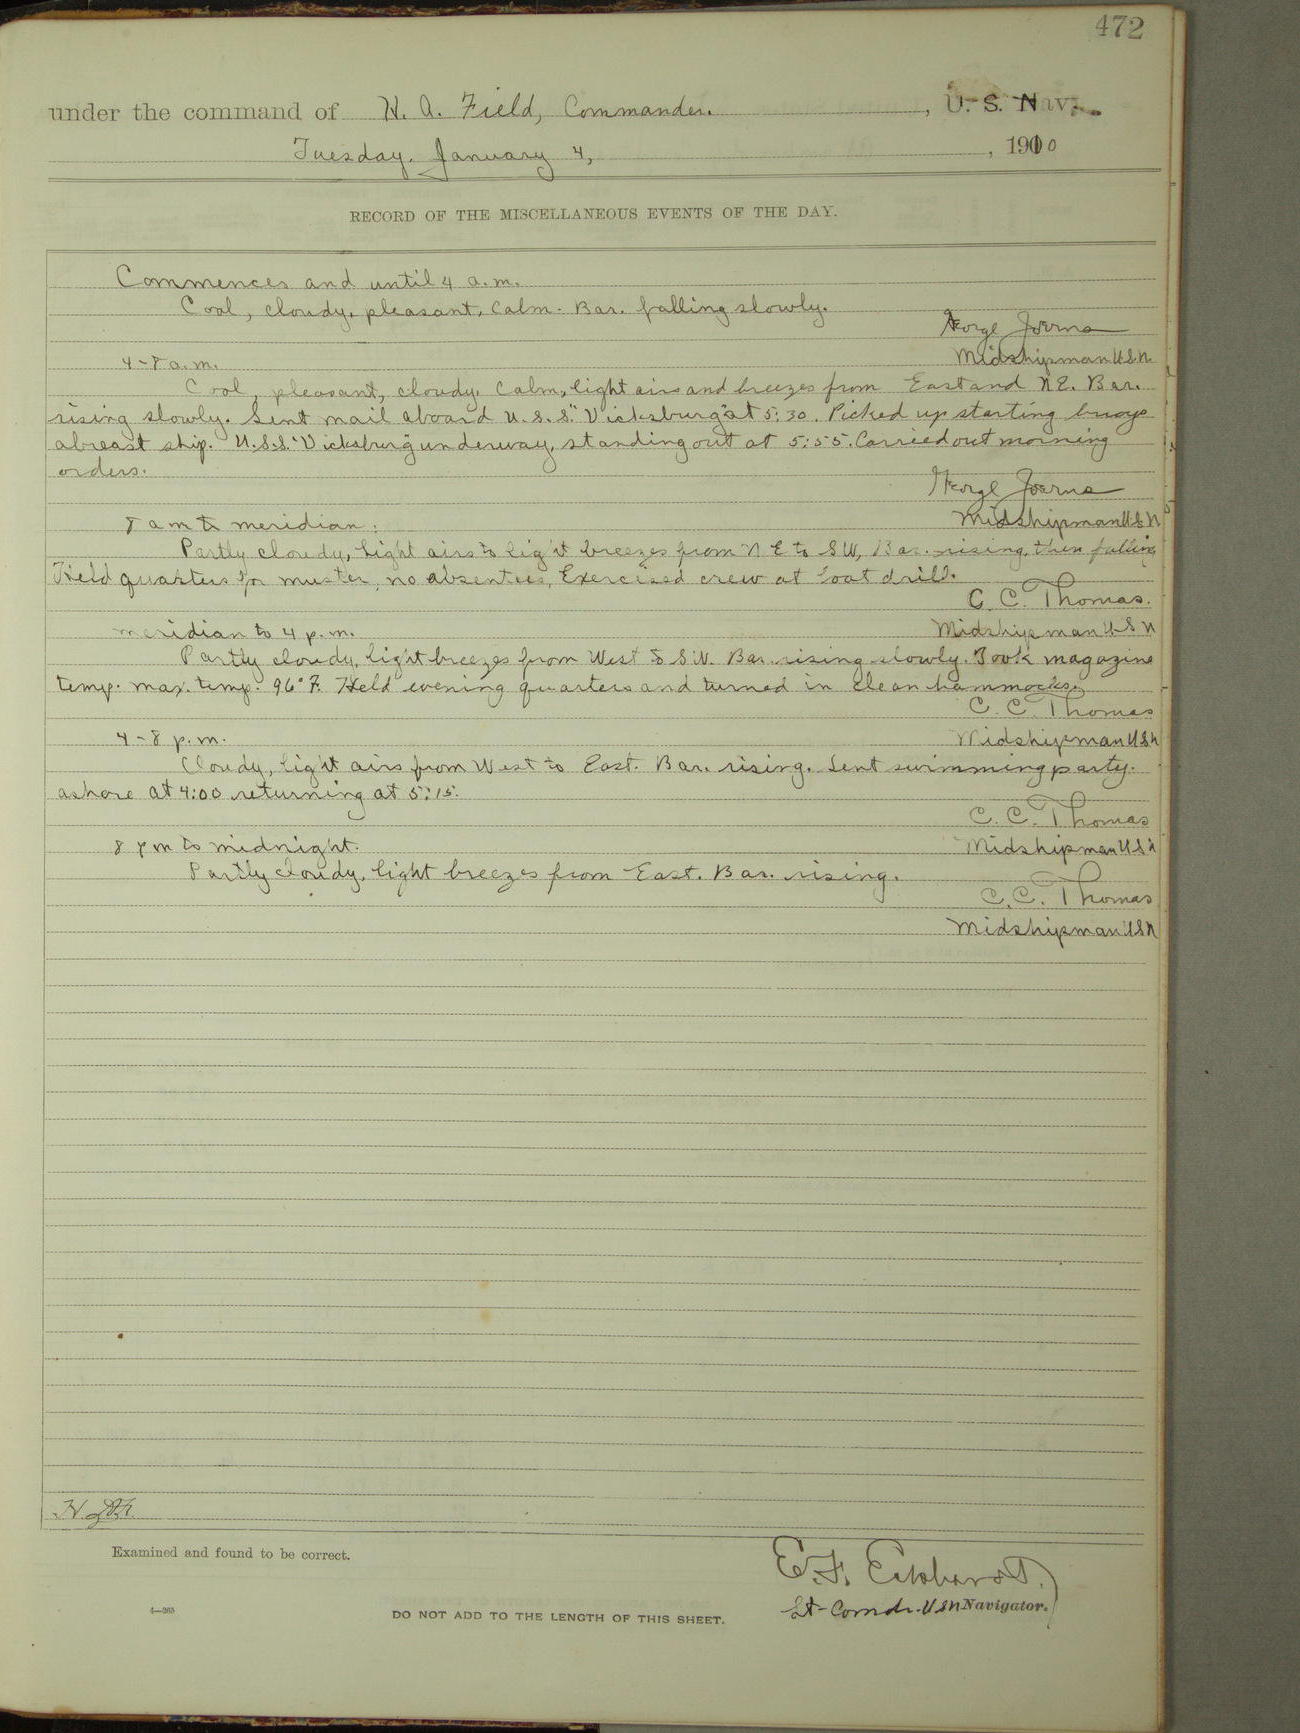 472
under the command of W. A. Field, Commander. , U. S. Nav
Tuesday. January 4, , 1910
RECORD OF THE MISCELLANEOUS EVENTS OF THE DAY.
Commences and until 4 a.m.
Cool, cloudy, pleasant, calm. Bar. falling slowly.
George Joerns
Midshipman U.S.N.
4-8 a.m.
Cool, pleasant, cloudy, Calm, light airs and breezes from East and N.E. Bar.
rising slowly. Sent mail aboard U.S.S. "Vicksburg" at 5:30. Picked up starting buoys
abreast ship. U.S.S. "Vicksburg" underway, standing out at 5:55. Carried out morning
orders.
George Joerns
Midshipman U.S.N
8 am to meridian:
Partly cloudy, light airs to light breezes from N E to SW, Bar. rising, then falling
Held quarters for muster, no absentees, Exercised crew at boat drill.
C. C. Thomas.
Midshipman U.S.N
meridian to 4 p.m.
Partly cloudy, light breezes from West to S.W. Bar. rising slowly. Took magazine
temp. max. temp. 96° F. Held evening quarters and turned in clean hammocks.
C. C. Thomas
Midshipman U.S.N
4-8 p.m.
Cloudy, light airs from West to East. Bar. rising. Sent swimming party.
ashore at 4:00 returning at 5:15.
C. C. Thomas
Midshipman U.S.N
8 pm to midnight.
Partly cloudy, light breezes from East. Bar. rising.
C. C. Thomas
Midshipman U.S.N
Examined and found to be correct.
E. F. Eckhardt.
Lt-Comdr. U.S.N Navigator.
4—265
DO NOT ADD TO THE LENGTH OF THIS SHEET.